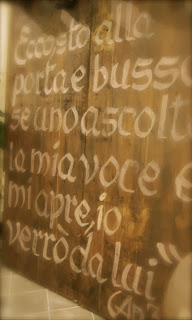 Ecco sto alla
porta e busso
se uno ascolt
la mia voce e
mi apre, io
verrò da lui"
(Ap 3